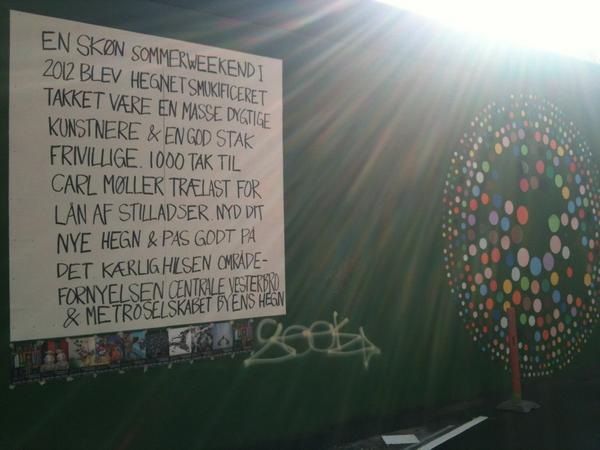 EN SKØN SOMMERWEEKEND I
2012 BLEV HEGNET SMUKIFICERET
TAKKET VÆRE EN MASSE DYGTIGE
KUNSTNERE & EN GOD STAK
FRIVILLIGE. 1000 TAK TIL
CARL MØLLER TRÆLAST FOR
LÅN AF STILLADSER. NYD DIT
NYE HEGN & PAS GODT PÅ
DET. KÆRLIG HILSEN OMRÅDE-
FORNYELSEN CENTRALE VESTERBRO
& METROSELSKABET BYENS HEGN